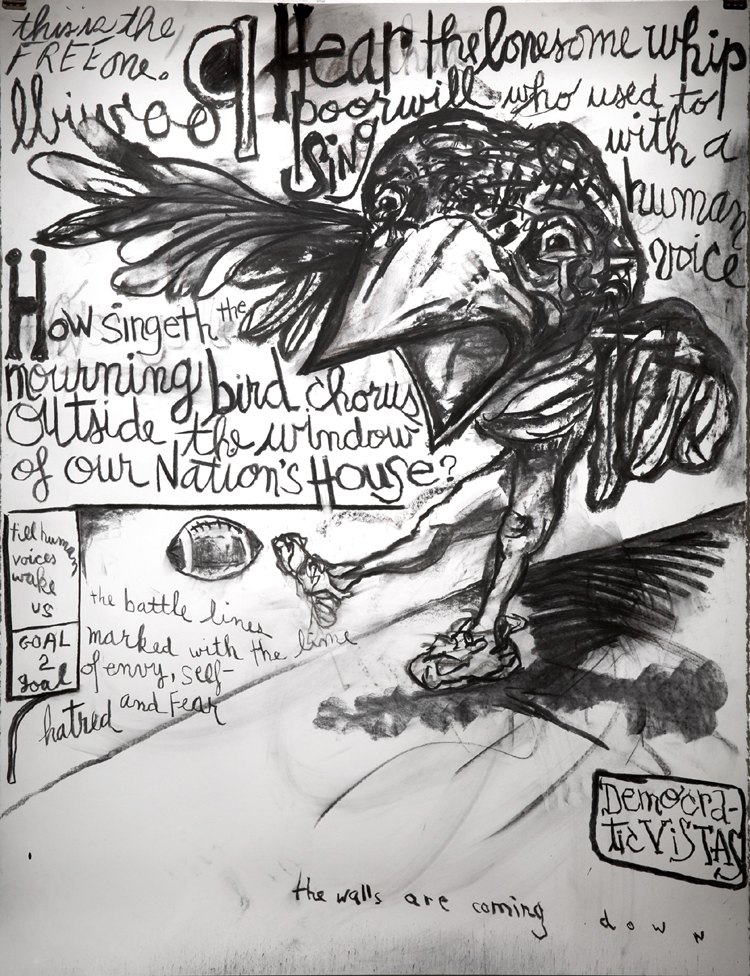 this is the
FREE one.
lliwrooq
Hear the lonesome whip
poorwill who used to
Sing with a
human
voice
How singeth the
mourning bird chorus
outside the window
of our Nation's House?
till human
voices
wake
us
GOAL
2
goal
the battle lines
marked with the lime
of envy, self-
hatred and Fear
Democra-
tic ViSTAS
the walls are coming down